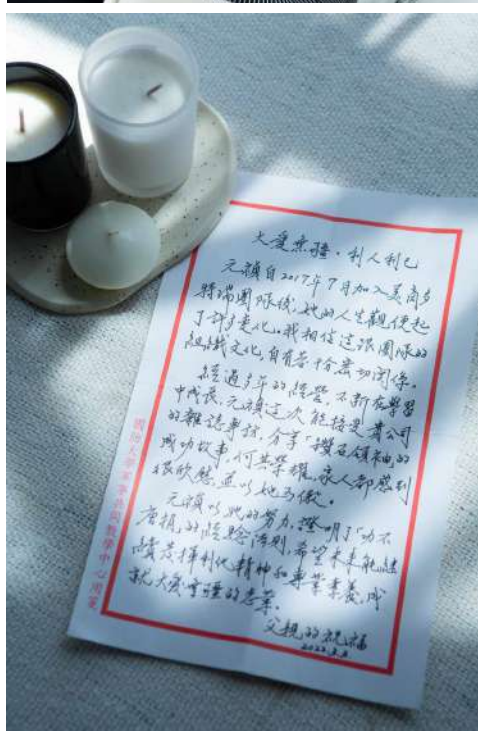 大愛無疆·利人利己
元禎自2017年7月加入美商多
特瑞團隊後,她的人生觀便起
了許多變化。我相信這跟團隊的
組織文化,自有著十分密切關係。
經過多年的經營,不斷在學習
中成長,元禎這次能接受貴公司
的雜誌專訪,分享「鑽石領袖」的
成功故事,何其榮耀,家人都感到
很欣慰,並以她為傲。
元禎以她的努力,證明了「功不
唐捐」的經驗法則,希望未來能繼
續發揮利他精神和專業素養,成
就大愛無疆的志業。
父親的祝福
2022.3.2
大學軍事共同教學中心用箋